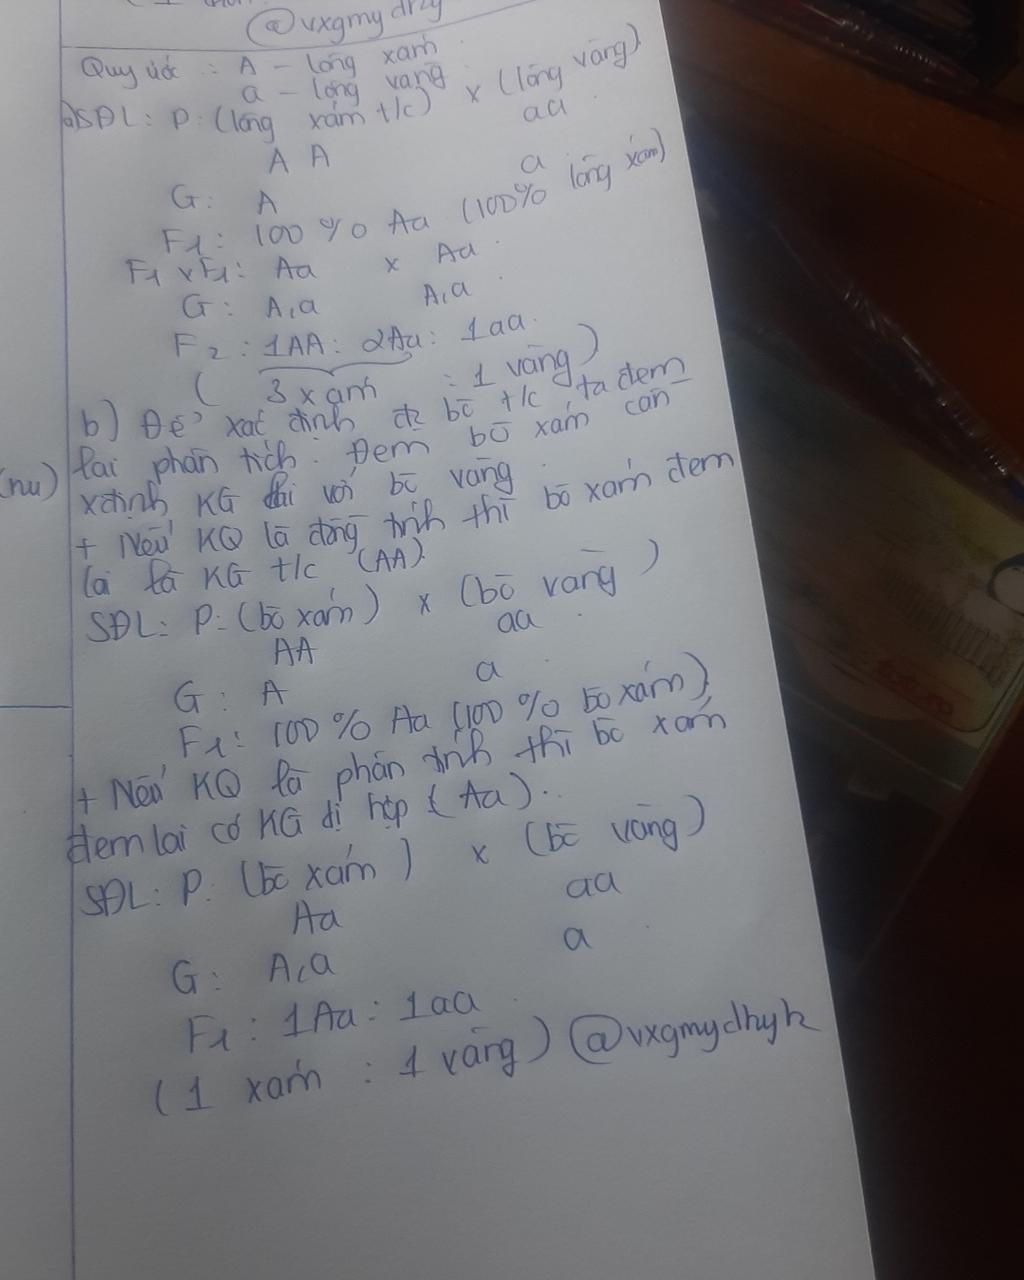 @vxgmydhy
Quy ước : A - lông xám
a - lông vàng
a) SĐL: P: (lông xám t/c) x (lông vàng)
AA aa
G: A a
F1: 100% Aa (100% lông xám)
F1 x F1: Aa x Aa
G: A,a A,a
F2: 1AA: 2Aa: 1aa
( 3 xám : 1 vàng)
b) Để xác định bò t/c ta đem
lai phân tích: Đem bò xám cần
(nu) xđịnh KG lai với bò vàng
+ Nếu KQ là đồng tính thì bò xám đem
lai là KG t/c (AA)
SĐL: P: (bò xám) x (bò vàng)
AA aa
G: A a
F1: 100% Aa (100% bò xám)
+ Nếu KQ là phân tính thì bò xám
đem lai có KG dị hợp (Aa).
SĐL: P: (bò xám) x (bò vàng)
Aa aa
G: A,a a
F1: 1Aa: 1aa
(1 xám : 1 vàng) @vxgmydhyk